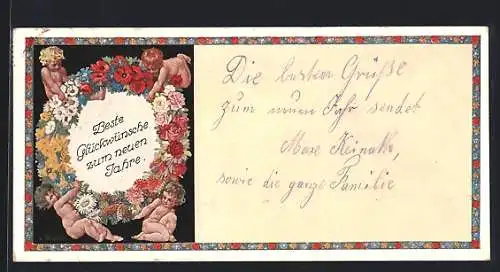 Beste
Glückwünsche
zum neuen
Jahre.
Die besten Grüße
zum neuen Jahr sendet
sowie die ganze Familie